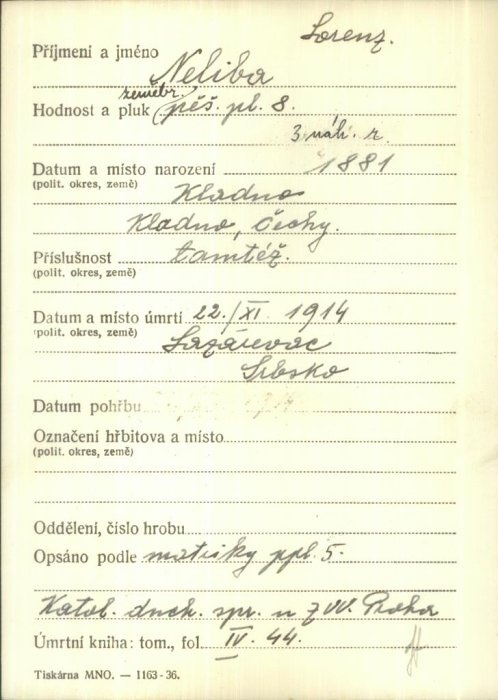 Lorenz.
Příjmení a jméno
Neliba
zeměbr.
Hodnost a pluk pěš. pl. 8.
3. náh. r.
Datum a místo narození 1881
(polit. okres, země)
Kladno
Kladno, Čechy.
Příslušnost tamtéž.
(polit. okres, země)
Datum a místo úmrtí 22./XI. 1914
(polit. okres, země)
Lazarevac
Srbsko
Datum pohřbu
Označení hřbitova a místo
(polit. okres, země)
Oddělení, číslo hrobu
Opsáno podle matriky ppl. 5.
Katol. duch. spr. u ZVV. Praha
Úmrtní kniha: tom., fol. IV. 44.
Tiskárna MNO. — 1163-36.